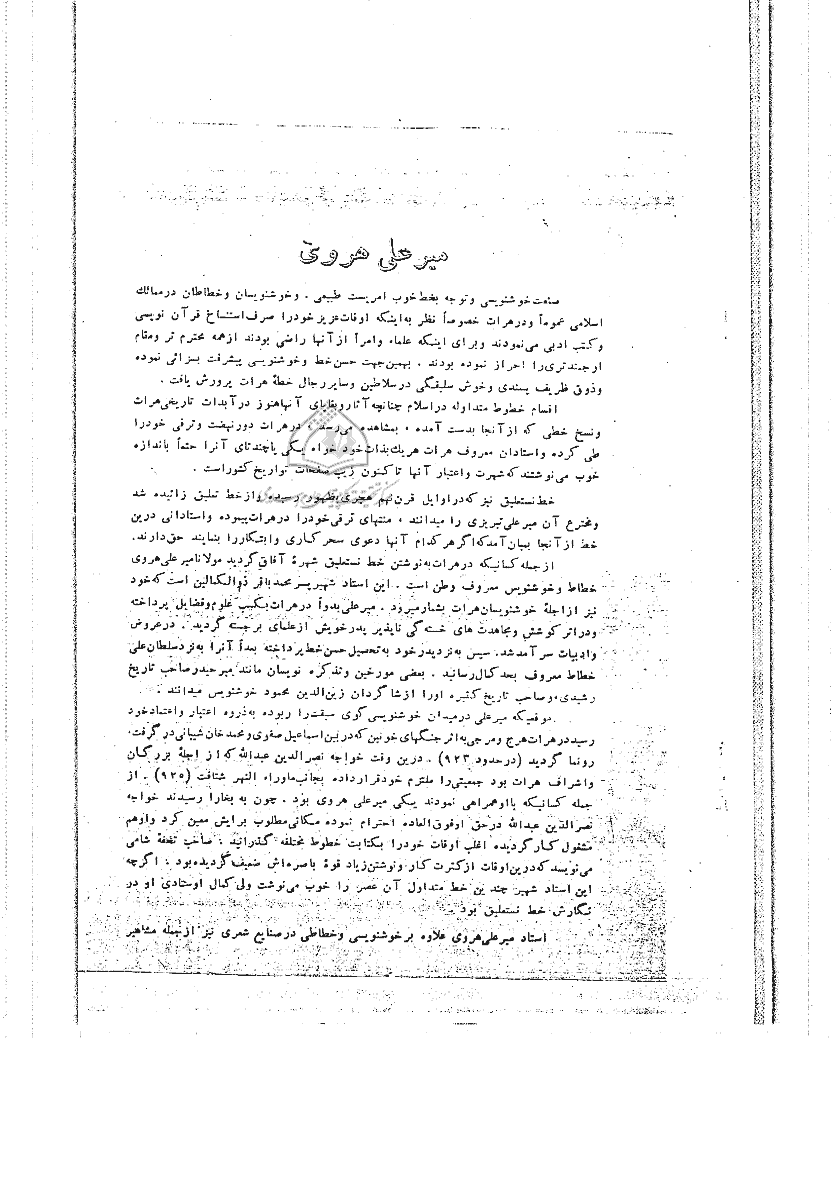 میر علی هروی
صنعت خوشنویسی و توجه بخط خوب امریست طبیعی . و خوشنویسان و خطاطان در ممالک
اسلامی عموماً و در هرات خصوصاً نظر به اینکه اوقات عزیز خود را صرف استنساخ قرآن نویسی
و کتب ادبی می‌نمودند و برای اینکه علماء و امرأ از آنها راضی بودند از همه محترم تر و مقام
ارجمندتری را احراز نموده بودند . بهمین جهت حسن خط و خوشنویسی پیشرفت بسزائی نموده
و ذوق ظریف پسندی و خوش سلیقگی در سلاطین و سایر رجال خطهٔ هرات پرورش یافت .
اقسام خطوط متداوله در اسلام چنانچه آثار و بقایای آنها هنوز در آبدات تاریخی هرات
و نسخ خطی که از آنجا بدست آمده ، بمشاهده می‌رسد ، در هرات دور نهضت و ترقی خود را
طی کرده و استادان معروف هرات هریک بذات خود خواه یکی یا چندتای آنرا حتماً باندازه
خوب می‌نوشتند که شهرت و اعتبار آنها تاکنون زیب صفحات تواریخ کشور است .
خط نستعلیق نیز که در اوایل قرن نهم هجری بظهور رسیده و از خط تعلیق زائیده شد
و مخترع آن میر علی تبریزی را میدانند ، منتهای ترقی خود را در هرات پیموده و استادانی درین
خط از آنجا بمیان آمد که اگر هر کدام آنها دعوی سحرکاری و ابتکار را بنمایند حق دارند.
از جمله کسانیکه در هرات به نوشتن خط نستعلیق شهرهٔ آفاق گردید مولانا میر علی هروی
خطاط و خوشنویس معروف وطن است . این استاد شهیر پسر محمد باقر ذوالکمالین است که خود
نیز از اجلهٔ خوشنویسان هرات بشمار میرود . میر علی بدواً در هرات بکسب علوم و فضایل پرداخته
و در اثر کوشش و مجاهدت های خستگی ناپذیر پدر خویش از علمای برجسته گردید . در عروض
و ادبیات سرآمد شد. سپس به نزد پدر خود به تحصیل حسن خط پرداخته بعداً آنرا به نزد سلطان علی
خطاط معروف بحد کمال رسانید . بعضی مورخین و تذکره نویسان مانند میر حیدر صاحب تاریخ
رشیدی و صاحب تاریخ کثیره او را از شاگردان زین‌الدین محمود خوشنویس میدانند .
موقعیکه میر علی در میدان خوشنویسی گوی سبقت را ربوده به ذروه اعتبار و اعتماد خود
رسید در هرات هرج و مرجی به اثر جنگهای خونین که در بین اسماعیل صفوی و محمد خان شیبانی در گرفت،
رونما گردید (در حدود ۹۲۳) . درین وقت خواجه نصرالدین عبدالله که از اجلهٔ بزرگان
و اشراف هرات بود جمعیتی را ملتزم خود قرار داده بجانب ماوراء النهر شتافت (۹۲۵) . از
جمله کسانیکه با او همراهی نمودند یکی میر علی هروی بود . چون به بخارا رسیدند خواجه
نصرالدین عبدالله در حق او فوق العاده احترام نموده مکانی مطلوب برایش معین کرد و او هم
مشغول کار گردیده اغلب اوقات خود را بکتابت خطوط مختلفه گذرانید . صاحب تحفهٔ شامی
می‌نویسد که درین اوقات از کثرت کار و نوشتن زیاد قوهٔ باصره‌اش ضعیف گردیده بود . اگرچه
این استاد شهیر چندین خط متداول آن عصر را خوب می‌نوشت ولی کمال اوستادی او در
نگارش خط نستعلیق بود .
استاد میر علی هروی علاوه بر خوشنویسی و خطاطی در صنایع شعری نیز از جمله مشاهیر